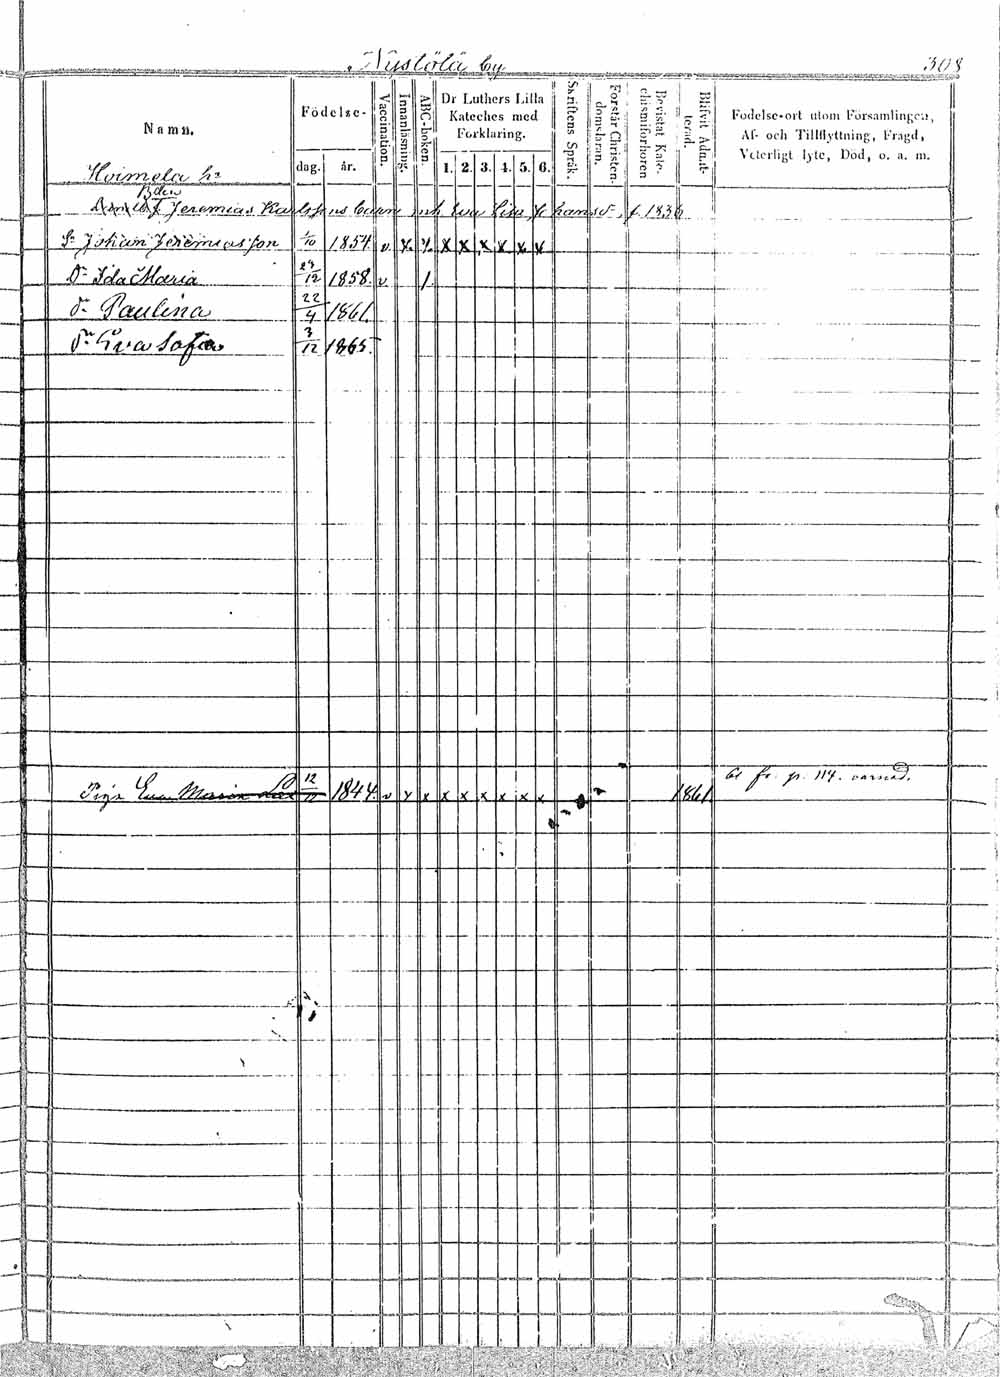 Nystölä by
308
Namn.
Födelse-
dag. år.
Vaccination.
Innanläsning.
ABC-boken.
Dr Luthers Lilla
Kateches med
Förklaring.
1. 2. 3. 4. 5. 6.
Skriftens Språk.
Förstår Christen-
domsläran.
Bevistat Kate-
chismiförhören
Blifvit Admit-
terad.
Födelse-ort utom Församlingen,
Af- och Tillflyttning, Frägd,
Veterligt lyte, Död, o. a. m.
Hoimela hn
Bden
Jeremias Karlssons barn Eva Lisa Johansdr, f. 1836
Sn Johan Jeremiasson 1/10 1854. v. x x x x x x x
Dr Ida Maria 29/12 1858. v. /
dr Paulina 22/4 1861.
dr Eva Sofia 3/12 1865.
Piga Eva Maria 12 1844. v x x x x x x x x 1861.
fr. p. 114. varnad.